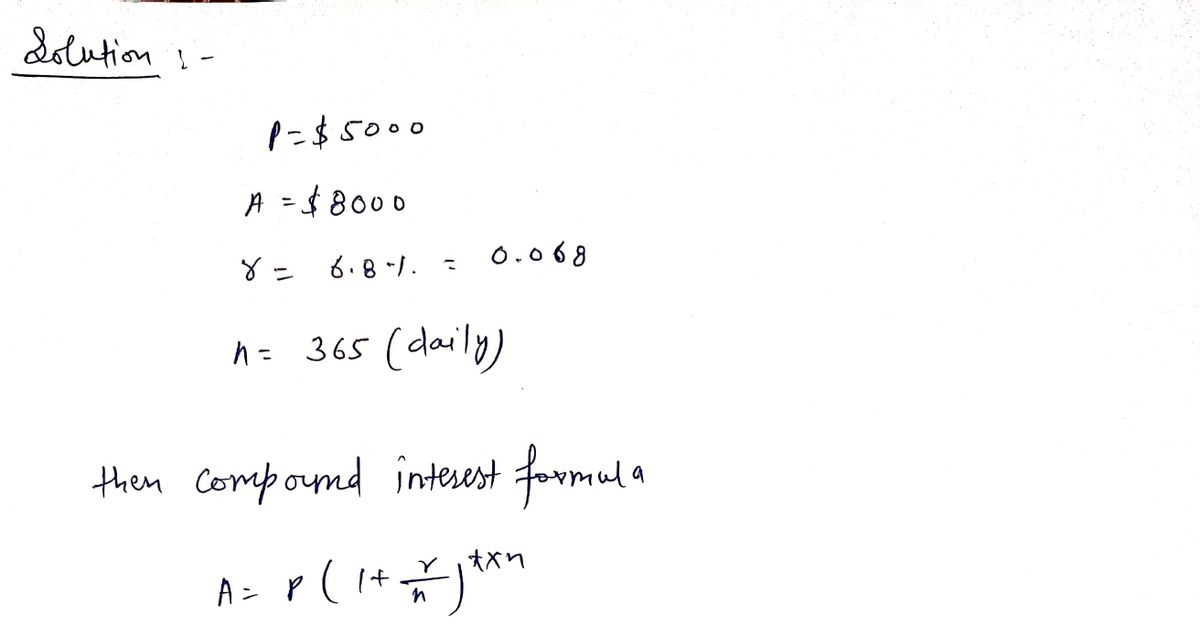 Solution :-
P = $ 5000
A = $ 8000
r = 6.8 % = 0.068
n = 365 (daily)
then compound interest formula
A = P ( 1 + r/n )^t×n